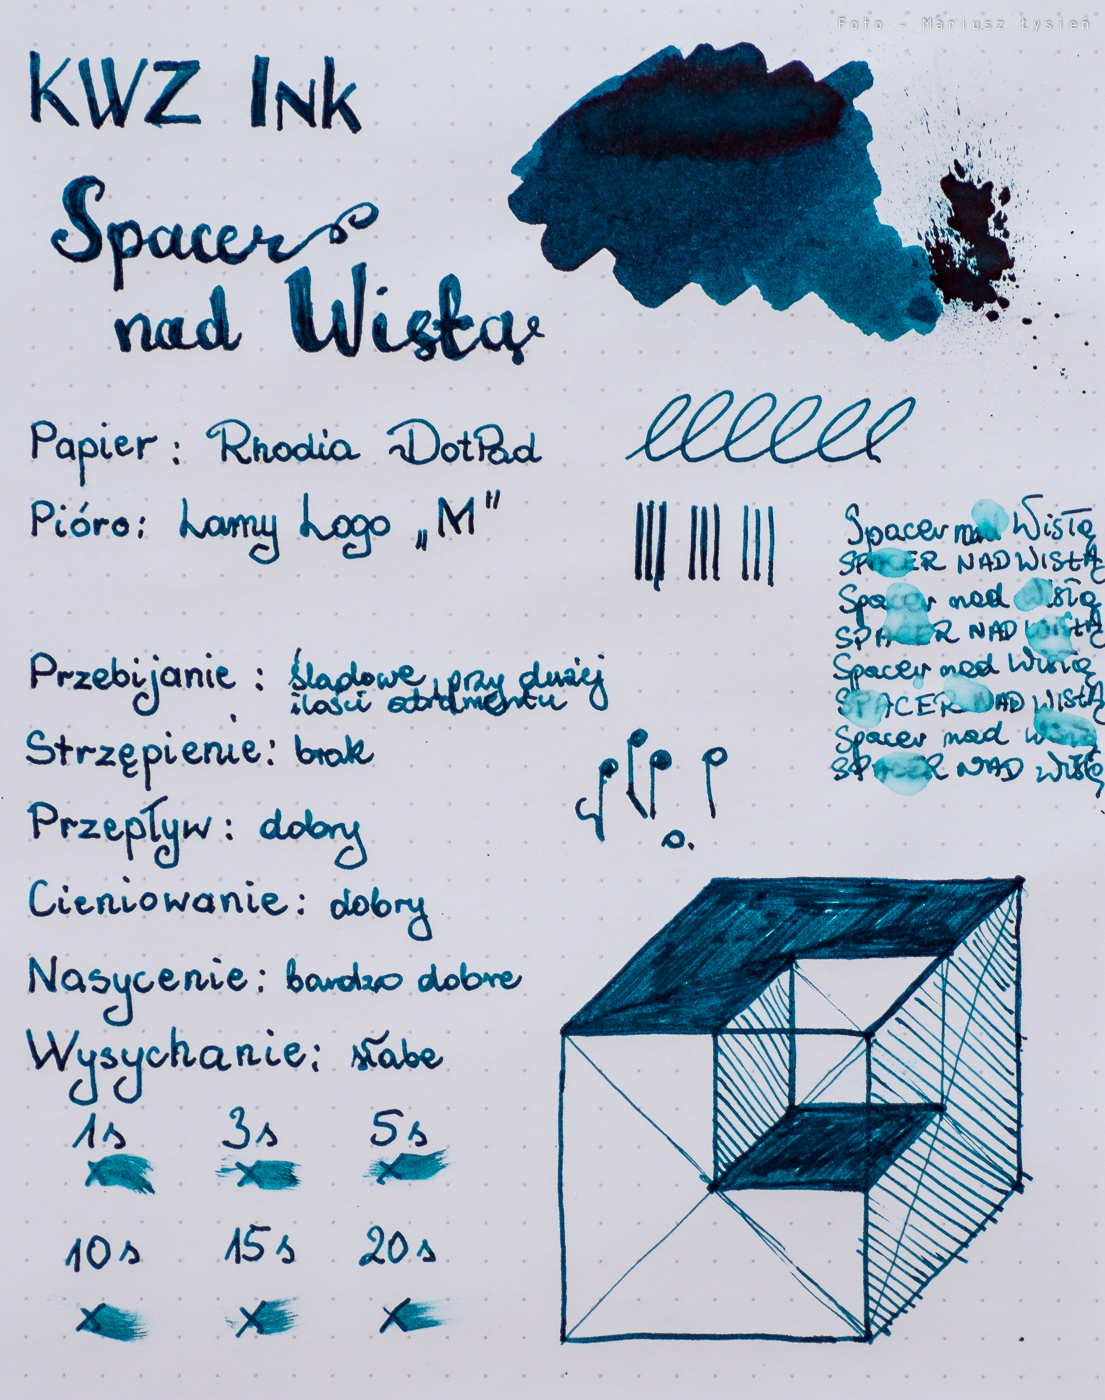 Foto - Mariusz Łysień
KWZ Ink
Spacer
nad Wisłą
Papier: Rhodia DotPad
Pióro: Lamy Logo „M"
Spacer nad Wisłą
SPACER NAD WISŁĄ
Spacer nad Wisłą
SPACER NAD WISŁĄ
Spacer nad Wisłą
SPACER NAD WISŁĄ
Spacer nad Wisłą
SPACER NAD Wisłą
Przebijanie: śladowe, przy dużej
ilości atramentu
Strzępienie: brak
Przepływ: dobry
Cieniowanie: dobry
Nasycenie: bardzo dobre
Wysychanie: słabe
1s 3s 5s
x x x
10s 15s 20s
x x x